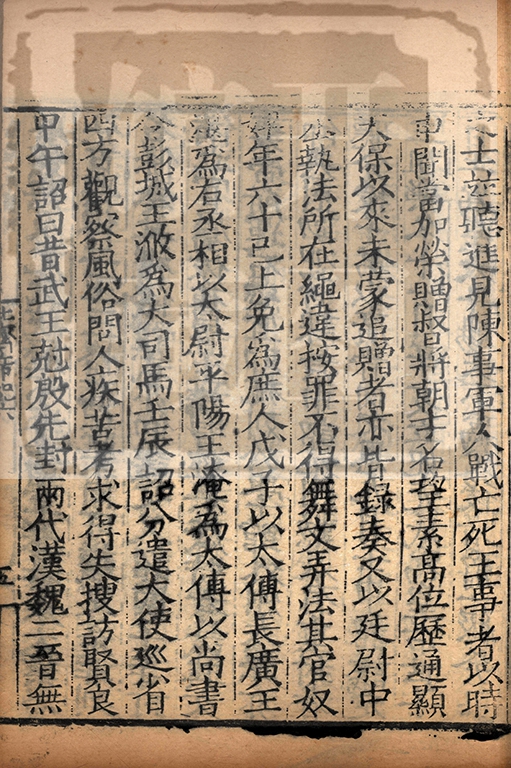 之士並聽進見陳事軍人戰亡死王事者以時
申聞當加榮贈督將朝士名望素高位歷通顯
天保以來未蒙追贈者亦皆録奏又以廷尉中
丞執法所在繩違按罪不得舞文弄法其官奴
婢年六十已上免為庶人戊子以太傅長廣王
湛為右丞相以太尉平陽王淹為太傅以尚書
令彭城王浟為大司馬壬辰詔分遣大使巡省
四方觀察風俗問人疾苦考求得失搜訪賢良
甲午詔曰昔武王尅殷先封兩代漢魏二晉無
五